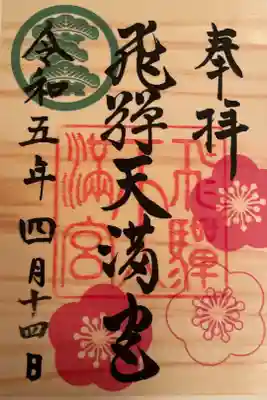 奉拝
飛騨天満宮
飛驒天満宮
令和五年四月十四日